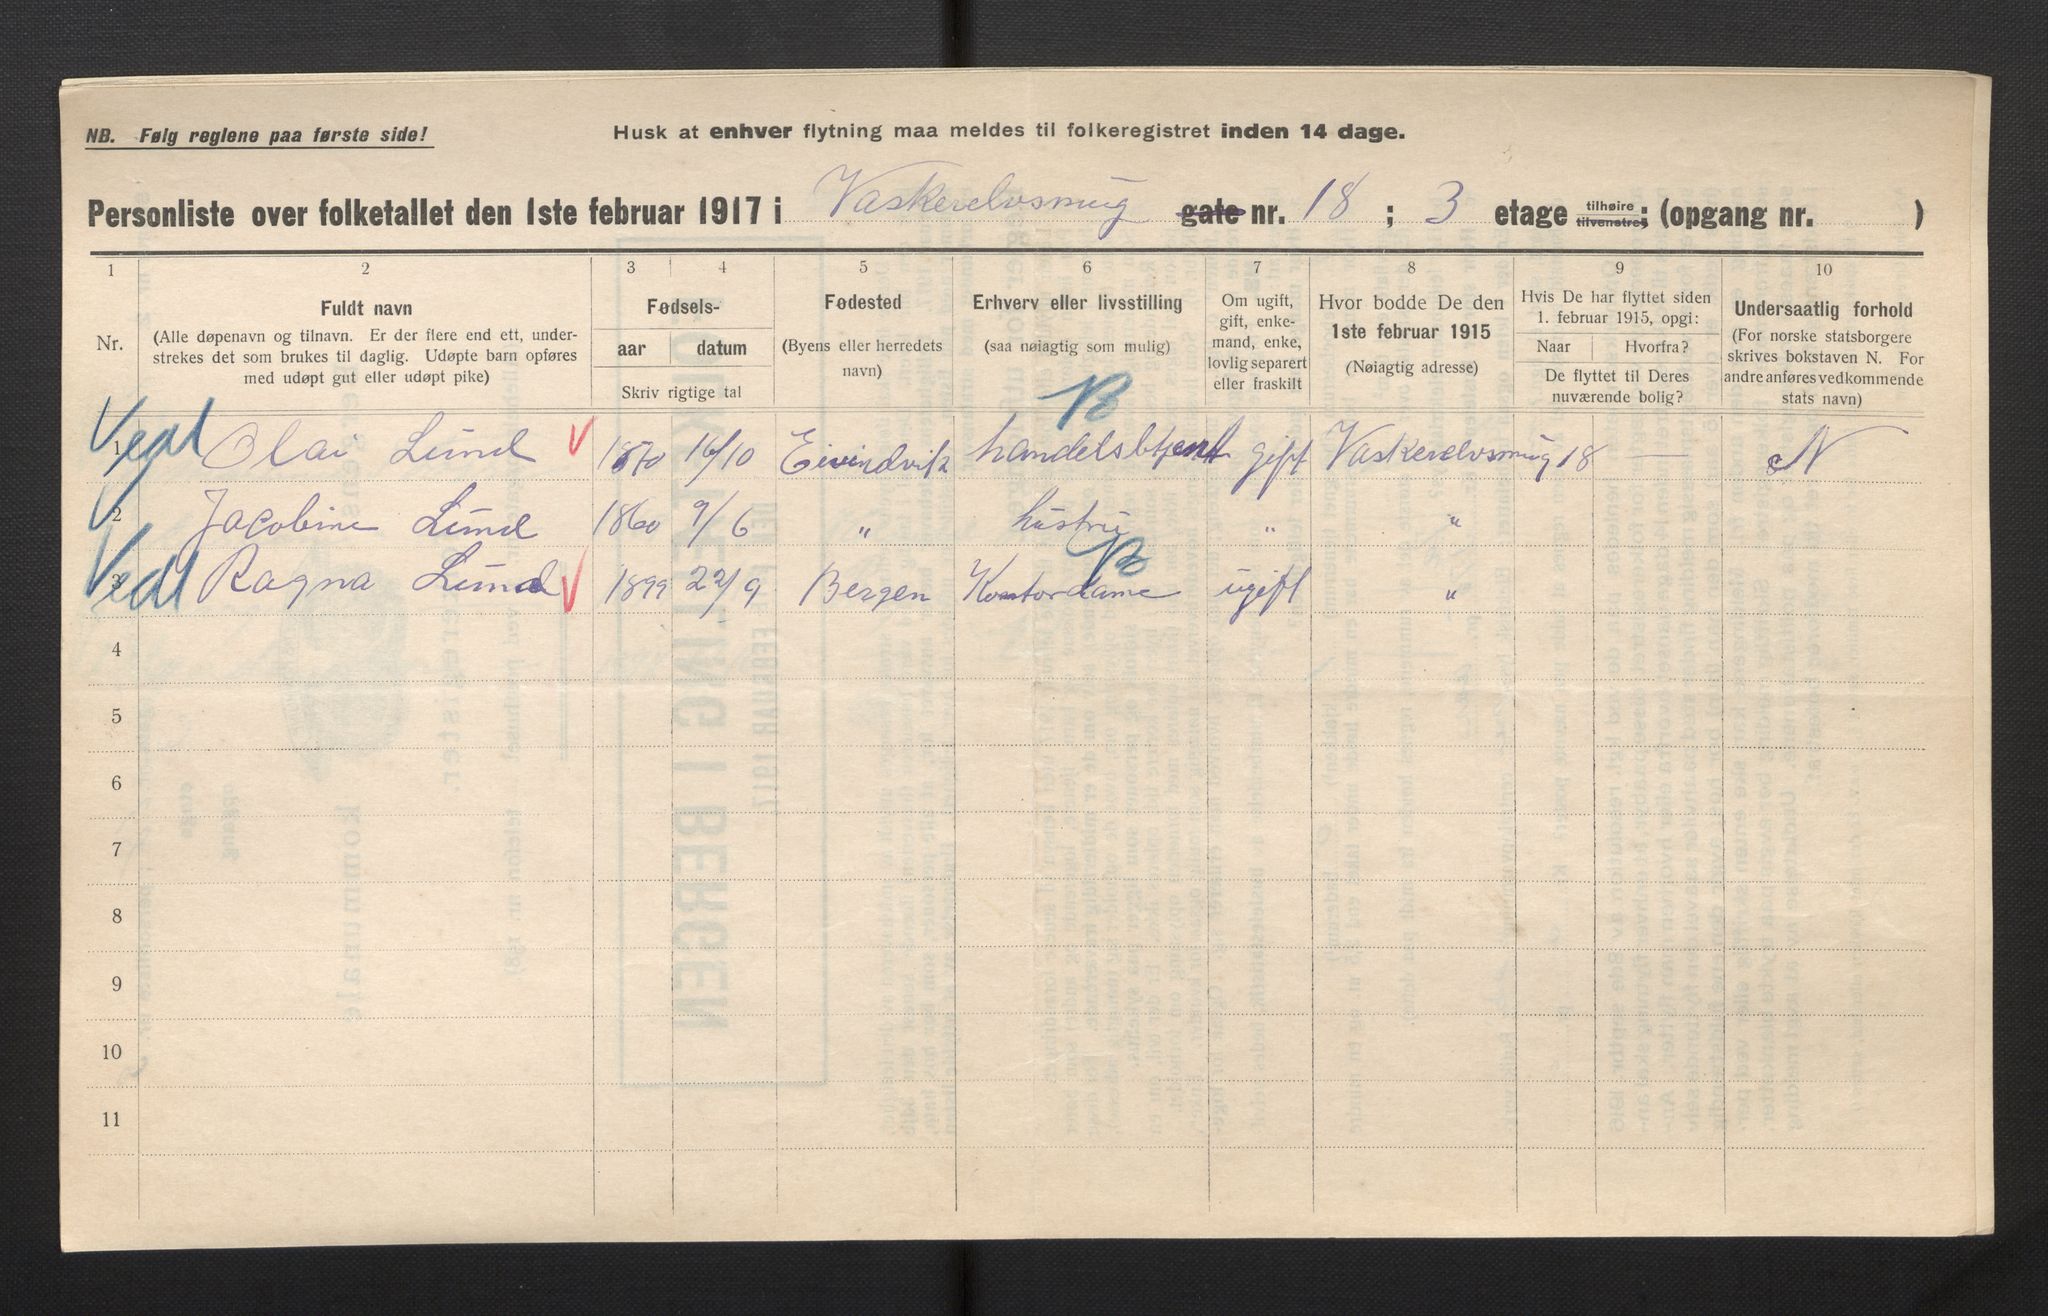 NB. Følg reglene paa første side!
Husk at enhver flytning maa meldes til folkeregistret inden 14 dage.
Personliste over folketallet den 1ste februar 1917 i Vaskerelvsmug gate nr. 18 ; 3 etage tilhøire tilvenstre; (opgang nr. )
1 2 3 4 5 6 7 8 9 10
Nr.
Fuldt navn
(Alle døpenavn og tilnavn. Er der flere end ett, under-
strekes det som brukes til daglig. Udøpte barn opføres
med udøpt gut eller udøpt pike)
Fødsels-
aar datum
Skriv rigtige tal
Fødested
(Byens eller herredets
navn)
Erhverv eller livsstilling
(saa nøiagtig som mulig)
Om ugift,
gift, enke-
mand, enke,
lovlig separert
eller fraskilt
Hvor bodde De den
1ste februar 1915
(Nøiagtig adresse)
Hvis De har flyttet siden
1. februar 1915, opgi:
Naar Hvorfra?
De flyttet til Deres
nuværende bolig?
Undersaatlig forhold
(For norske statsborgere
skrives bokstaven N. For
andre anføres vedkommende
stats navn)
B
Vedl 1 Olai Lund V 1870 16/10 Eivindvik handelsbtjent gift Vaskerelvsmug 18 — N
V 2 Jacobine Lund 1860 9/6 " hustru " "
B
Vedl 3 Ragna Lund V 1899 22/9 Bergen Kontordame ugift "
4
5
6
7
8
9
10
11